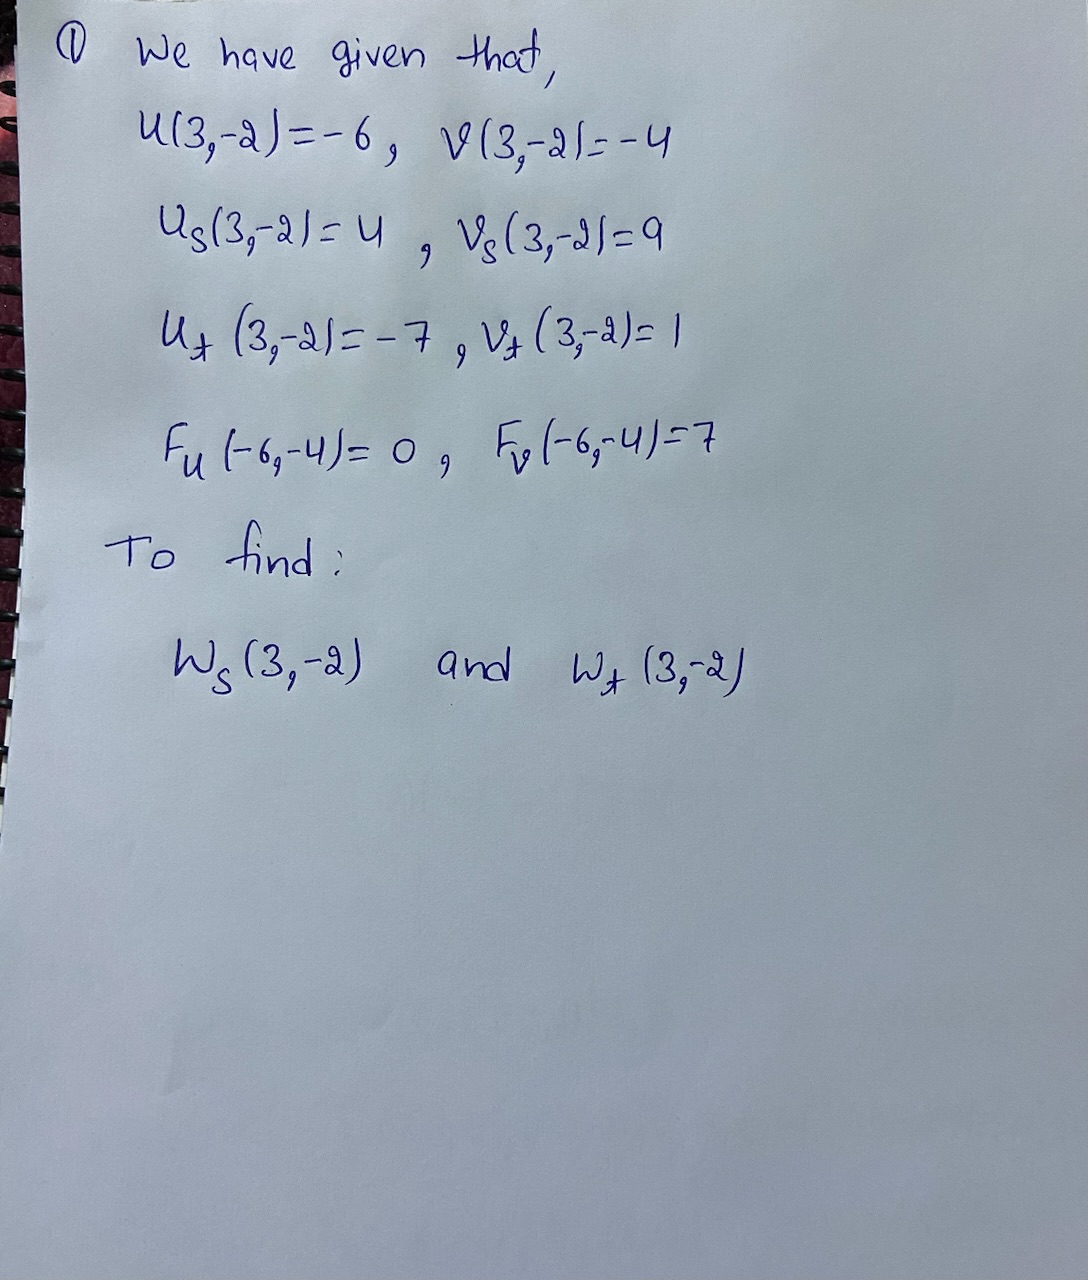 ① We have given that,
u(3,-2)=-6, v(3,-2)=-4
us(3,-2)=4, vs(3,-2)=9
ut(3,-2)=-7, vt(3,-2)=1
Fu(-6,-4)=0, Fv(-6,-4)=7
To find:
Ws(3,-2) and Wt(3,-2)